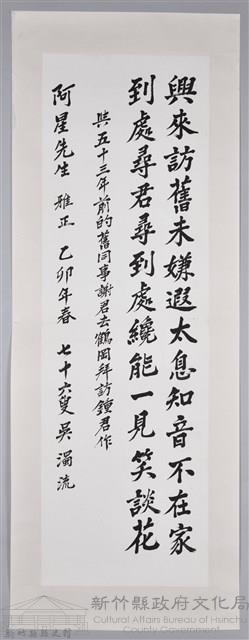 興來訪舊未嫌遐太息知音不在家
到處尋君尋到處纔能一見笑談花
與五十三年前的舊同事謝君去鶴岡拜訪鍾君作
阿星先生 雅正 乙卯年春 七十六叟吳濁流
新竹縣政府文化局
Cultural Affairs Bureau of Hsinchu
County Government